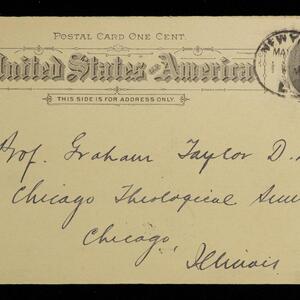 POSTAL CARD ONE CENT.
United States of America
THIS SIDE IS FOR ADDRESS ONLY.
NEW Y
MA
Prof. Graham Taylor D.
Chicago Theological Sem
Chicago,
Illinois